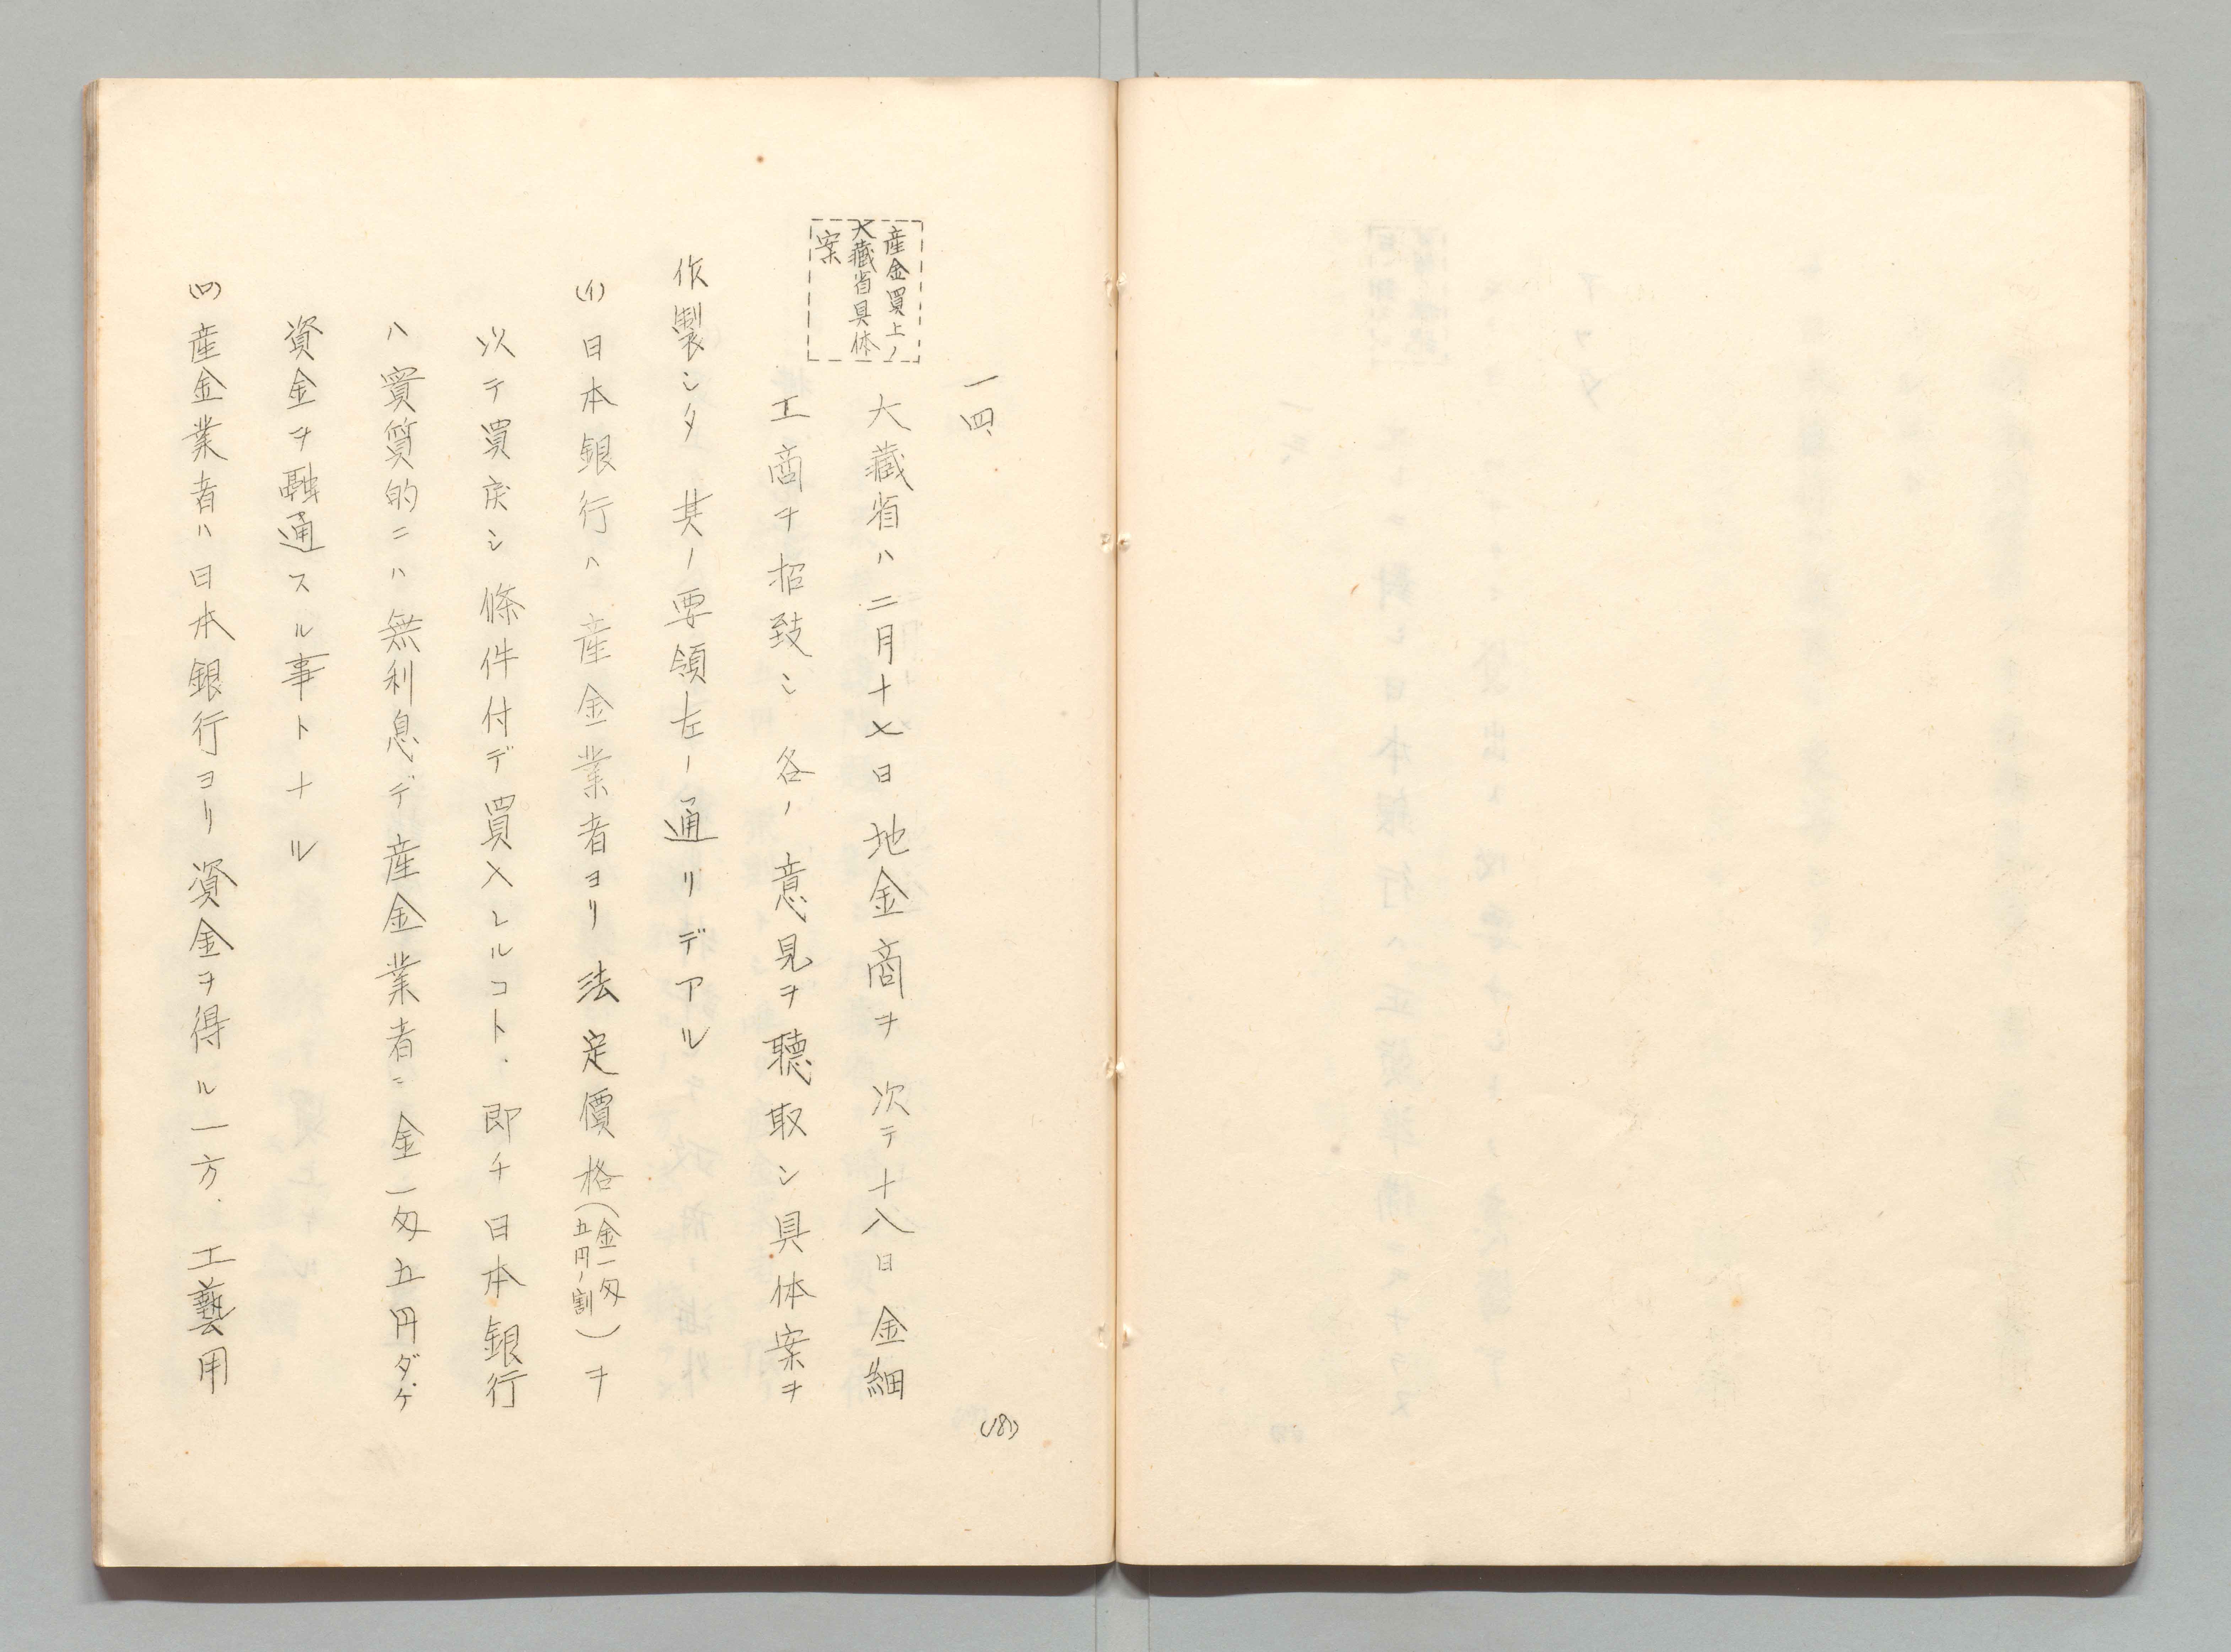 一四、
産金買上ノ
大藏省具体
案
大藏省ハ二月十七日地金商ヲ次テ十八日金細
工商ヲ招致シ各ノ意見ヲ聴取シ具体案ヲ
作製シタ其ノ要領左ノ通リデアル
(イ)日本銀行ハ産金業者ヨリ法定價格(金一匁五円ノ割)ヲ
以テ買戻シ條件付デ買入レルコト、即チ日本銀行
ハ實質的ニハ無利息デ産金業者ニ金一匁五円ダケ
資金ヲ融通スル事トナル
(ロ)産金業者ハ日本銀行ヨリ資金ヲ得ル一方、工藝用
(18)